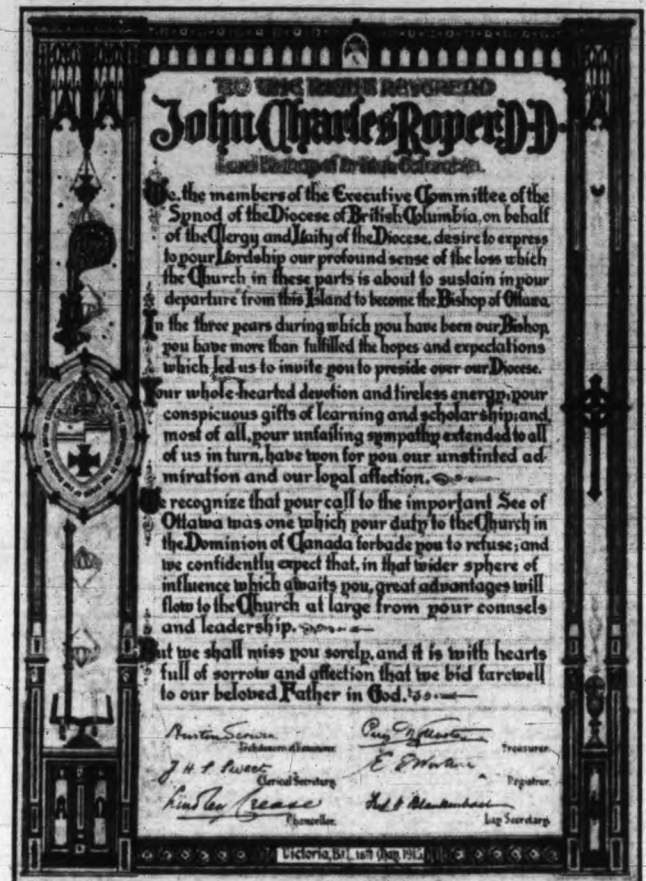 TO THE RIGHT REVEREND
John Charles Roper D.D.
Lord Bishop of British Columbia.
We, the members of the Executive Committee of the
Synod of the Diocese of British Columbia, on behalf
of the Clergy and Laity of the Diocese, desire to express
to your Lordship our profound sense of the loss which
the Church in these parts is about to sustain in your
departure from this Island to become the Bishop of Ottawa.
In the three years during which you have been our Bishop,
you have more than fulfilled the hopes and expectations
which led us to invite you to preside over our Diocese.
Your whole-hearted devotion and tireless energy, your
conspicuous gifts of learning and scholarship; and,
most of all, your unfailing sympathy extended to all
of us in turn, have won for you our unstinted ad-
miration and our loyal affection.
We recognize that your call to the important See of
Ottawa was one which your duty to the Church in
the Dominion of Canada forbade you to refuse; and
we confidently expect that, in that wider sphere of
influence which awaits you, great advantages will
flow to the Church at large from your counsels
and leadership.
But we shall miss you sorely, and it is with hearts
full of sorrow and affection that we bid farewell
to our beloved Father in God.
Treasurer.
J H S Sweet
Clerical Secretary.
Registrar.
Lindley Crease
Chancellor.
Lay Secretary.
Victoria, B.C.